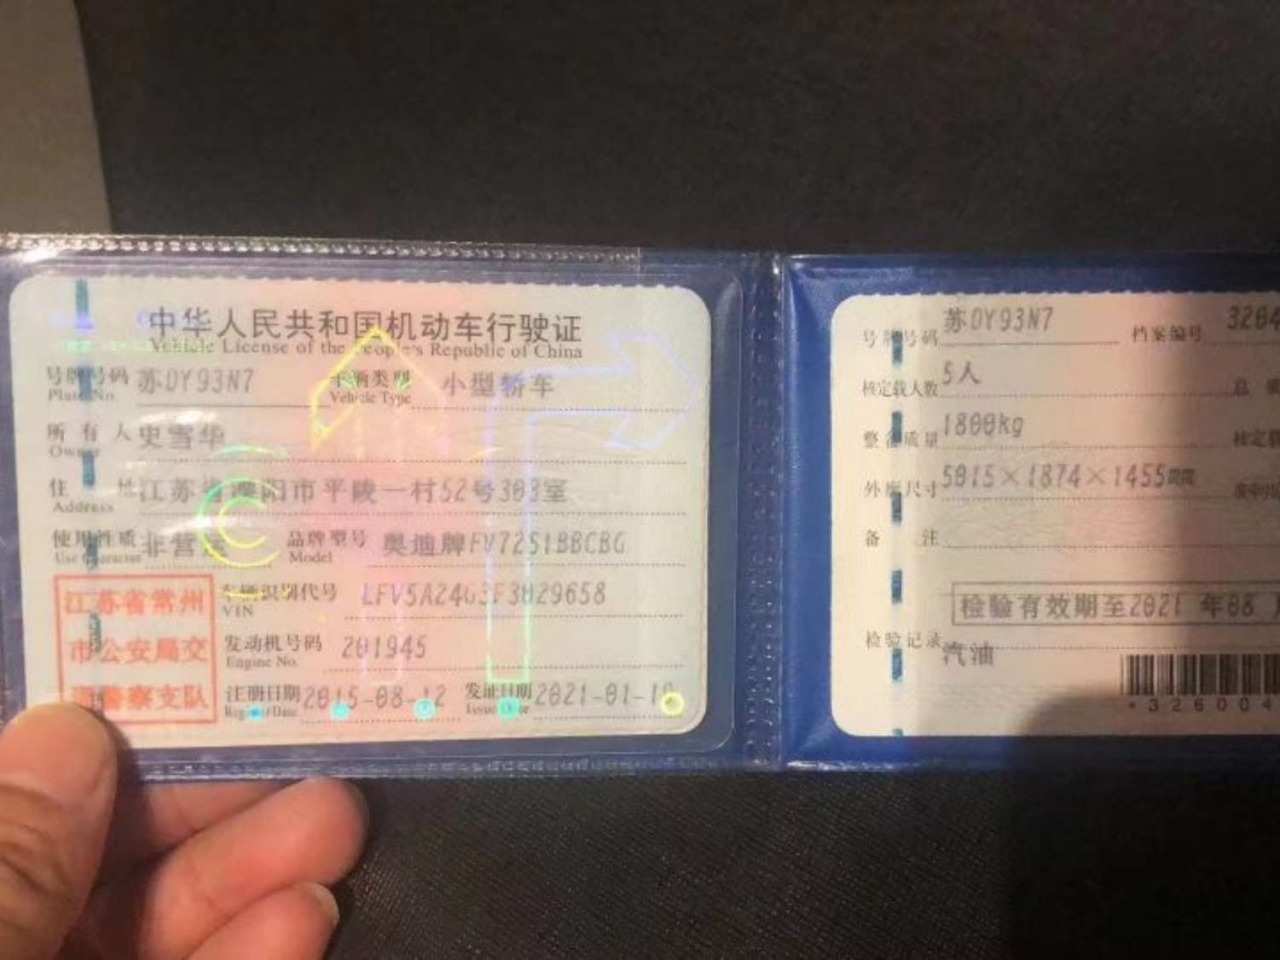 中华人民共和国机动车行驶证
Vehicle License of the People's Republic of China
号牌号码 苏DY93N7 车辆类型 小型轿车
Plate No. Vehicle Type
所有人 史雪华
Owner
住址 江苏省溧阳市平陵一村52号303室
Address
使用性质 非营运 品牌型号 奥迪牌FV7251BBCBG
Use Character Model
江苏省常州
市公安局交
警察支队
车辆识别代号 LFV5A24G3F3029658
VIN
发动机号码 201945
Engine No.
注册日期 2015-08-12 发证日期 2021-01-1
Register Date Issue Date
号牌号码 苏DY93N7 档案编号 3204
核定载人数 5人 总
整备质量 1800kg 核定
外廓尺寸 5015×1874×1455
备注
检验有效期至2021 年08
检验记录
汽油
*326004